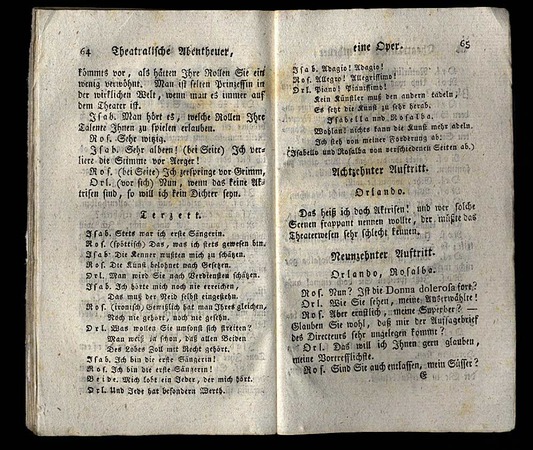 64 Theatralische Abentheuer,
kömmts vor, als hätten Ihre Rollen Sie ein
wenig verwöhnt. Man ist selten Prinzessin in
der wirklichen Welt, wenn man es immer auf
dem Theater ist.
Isab. Man hört es, welche Rollen Ihre
Talente Ihnen zu spielen erlauben.
Ros. Sehr witzig.
Isab. Sehr albern! (bei Seite) Ich ver-
liere die Stimme vor Aerger!
Ros. (bei Seite) Ich zerspringe vor Grimm,
Orl. (vor sich) Nun, wenn das keine Ak-
trisen sind, so will ich kein Dichter seyn.
Terzett.
Isab. Stets war ich erste Sängerin.
Ros. (spöttisch) Das, was ich stets gewesen bin.
Isab. Die Kenner wußten mich zu schätzen.
Ros. Die Kunst belohnet nach Gesetzen.
Orl. Man wird Sie nach Verdiensten schätzen.
Isab. Ich hörte mich noch nie erreichen,
Das muß der Neid selbst eingestehn.
Ros. (ironisch) Gewißlich hat man Ihres gleichen,
Noch nie gehört, noch nie gesehn.
Orl. Was wollen Sie umsonst sich streiten?
Man weiß ja schon, daß allen Beiden
Des Lobes Zoll mit Recht gehört.
Isab. Ich bin die erste Sängerin!
Ros. Ich bin die erste Sängerin!
Beide. Mich lobt ein Jeder, der mich hört.
Orl. Und Jede hat besondern Werth.
eine Oper. 65
Isab. Adagio! Adagio!
Ros. Allegro! Allegrissimo!
Orl. Piano! Pianissimo!
Kein Künstler muß den andern tadeln,
Es setzt die Kunst zu sehr herab.
Isabella und Rosalba.
Wohlan! nichts kann die Kunst mehr adeln.
Ich steh von meiner Forderung ab:
(Isabella und Rosalba von verschiedenen Seiten ab.)
Achtzehnter Auftritt.
Orlando.
Das heiß ich doch Aktrisen! und wer solche
Scenen frappant nennen wollte, der müßte das
Theaterwesen sehr schlecht kennen.
Neunzehnter Auftritt.
Orlando, Rosalba.
Ros. Nun? Ist die Donna dolerosa fort?
Orl. Wie Sie sehen, meine Auserwählte!
Ros. Aber eigentlich, meine Superbe? —
Glauben Sie wohl, daß mir der Aufsagebrief
des Directeurs sehr ungelegen kömmt?
Orl. Das will ich Ihnen gern glauben,
meine Vortreflichste.
Ros. Sind Sie auch entlassen, mein Süsser?
E